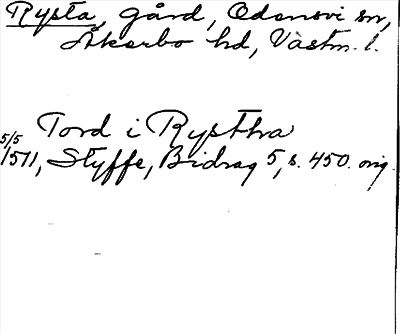 Rysta, gård, Odensvi sn,
Åkerbo hd, Västm. l.
Tord i Rystha
5/5
1511, Styffe, Bidrag 5, s. 450. orig.